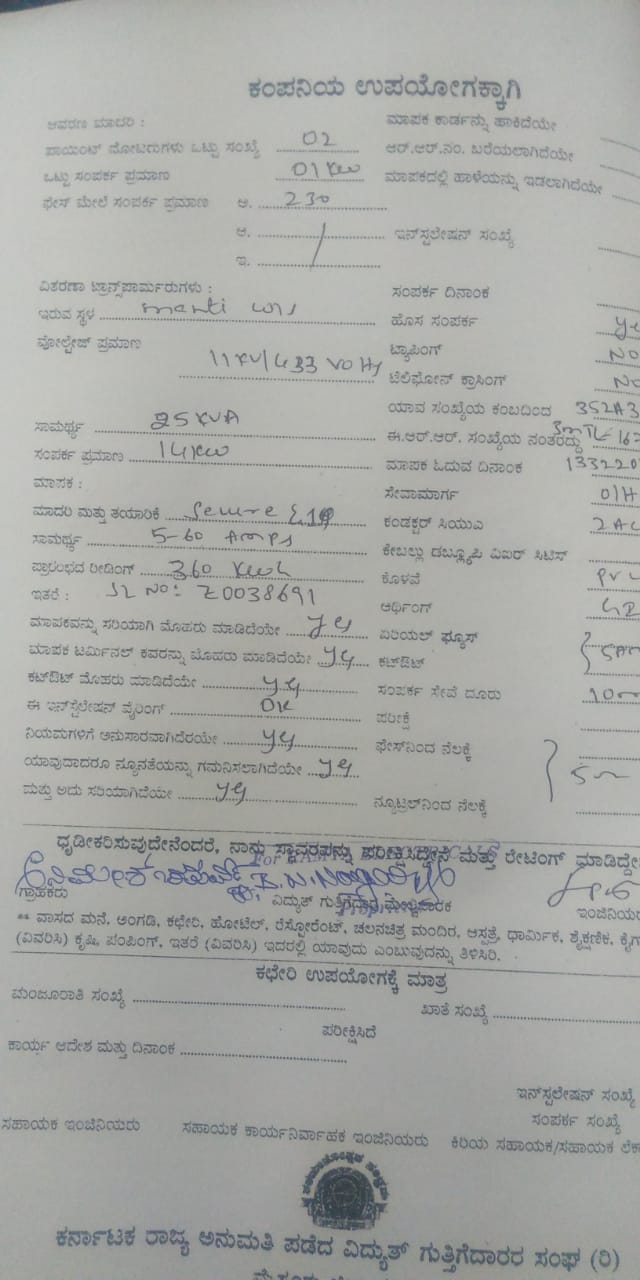 ಕಂಪನಿಯ ಉಪಯೋಗಕ್ಕಾಗಿ
ಆವರಣ ಮಾದರಿ : ಮಾಪಕ ಕಾರ್ಡನ್ನು ಹಾಕಿದೆಯೇ
ಪಾಯಿಂಟ್ ಮೋಟರುಗಳು ಒಟ್ಟು ಸಂಖ್ಯೆ 02 ಆರ್.ಆರ್.ನಂ. ಬರೆಯಲಾಗಿದೆಯೇ
ಒಟ್ಟು ಸಂಪರ್ಕ ಪ್ರಮಾಣ 01 KW ಮಾಪಕದಲ್ಲಿ ಹಾಳೆಯನ್ನು ಇಡಲಾಗಿದೆಯೇ
ಫೇಸ್ ಮೇಲೆ ಸಂಪರ್ಕ ಪ್ರಮಾಣ ಅ. 230
ಆ. ಇನ್‌ಸ್ಟಲೇಷನ್ ಸಂಖ್ಯೆ
ಇ.
ವಿತರಣಾ ಟ್ರಾನ್ಸ್‌ಫಾರ್ಮರುಗಳು : ಸಂಪರ್ಕ ದಿನಾಂಕ
ಇರುವ ಸ್ಥಳ ಹೊಸ ಸಂಪರ್ಕ
ವೋಲ್ಟೇಜ್ ಪ್ರಮಾಣ 11 KV/433 Volts ಟ್ಯಾಪಿಂಗ್ NO
ಟೆಲಿಫೋನ್ ಕ್ರಾಸಿಂಗ್ NO
ಯಾವ ಸಂಖ್ಯೆಯ ಕಂಬದಿಂದ 352A3
ಸಾಮರ್ಥ್ಯ 25 KVA ಈ.ಆರ್.ಆರ್. ಸಂಖ್ಯೆಯ ನಂತರದ್ದು
ಸಂಪರ್ಕ ಪ್ರಮಾಣ 14 KW ಮಾಪಕ ಓದುವ ದಿನಾಂಕ 133220
ಮಾಪಕ : ಸೇವಾಮಾರ್ಗ 01H
ಮಾದರಿ ಮತ್ತು ತಯಾರಿಕೆ Secure ಕಂಡಕ್ಟರ್ ಸಿಯುವಿ
ಸಾಮರ್ಥ್ಯ 5-60 Amps ಕೇಬಲ್ಲು ಡಬ್ಲ್ಯೂಪಿ ವಿಐರ್ ಸಿಟಿಸ್
ಪ್ರಾರಂಭದ ರೀಡಿಂಗ್ 360 Kwh ಕೊಳವೆ
ಇತರೆ : Sl No: Z0038691 ಆರ್ಥಿಂಗ್
ಮಾಪಕವನ್ನು ಸರಿಯಾಗಿ ಮೊಹರು ಮಾಡಿದೆಯೇ yes ಏರಿಯಲ್ ಫ್ಯೂಸ್
ಮಾಪಕ ಟರ್ಮಿನಲ್ ಕವರನ್ನು ಮೊಹರು ಮಾಡಿದೆಯೇ yes ಕಟ್‌ಔಟ್
ಕಟ್‌ಔಟ್ ಮೊಹರು ಮಾಡಿದೆಯೇ yes ಸಂಪರ್ಕ ಸೇವೆ ದೂರು
ಈ ಇನ್‌ಸ್ಟಲೇಷನ್ ವೈರಿಂಗ್ OK ಪರೀಕ್ಷೆ
ನಿಯಮಗಳಿಗೆ ಅನುಸಾರವಾಗಿದೆರಯೇ yes ಫೇಸ್‌ನಿಂದ ನೆಲಕ್ಕೆ
ಯಾವುದಾದರೂ ನ್ಯೂನತೆಯನ್ನು ಗಮನಿಸಲಾಗಿದೆಯೇ yes
ಮತ್ತು ಅದು ಸರಿಯಾಗಿದೆಯೇ yes ನ್ಯೂಟ್ರಲ್‌ನಿಂದ ನೆಲಕ್ಕೆ
ಧೃಡೀಕರಿಸುವುದೇನೆಂದರೆ, ನಾನು ಸ್ಥಾವರವನ್ನು ಪರೀಕ್ಷಿಸಿದ್ದೇನೆ ಮತ್ತು ರೇಟಿಂಗ್ ಮಾಡಿದ್ದೇ
ಗ್ರಾಹಕರು ವಿದ್ಯುತ್ ಗುತ್ತಿಗೆದಾರ ಮೇಲ್ವಿಚಾರಕ ಇಂಜಿನಿಯರ
** ವಾಸದ ಮನೆ, ಅಂಗಡಿ, ಕಛೇರಿ, ಹೋಟೆಲ್, ರೆಸ್ಟೋರೆಂಟ್, ಚಲನಚಿತ್ರ ಮಂದಿರ, ಆಸ್ಪತ್ರೆ, ಧಾರ್ಮಿಕ, ಶೈಕ್ಷಣಿಕ, ಕೈಗ
(ವಿವರಿಸಿ) ಕೃಷಿ, ಪಂಪಿಂಗ್, ಇತರೆ (ವಿವರಿಸಿ) ಇದರಲ್ಲಿ ಯಾವುದು ಎಂಬುವುದನ್ನು ತಿಳಿಸಿರಿ.
ಕಛೇರಿ ಉಪಯೋಗಕ್ಕೆ ಮಾತ್ರ
ಮಂಜೂರಾತಿ ಸಂಖ್ಯೆ ಖಾತೆ ಸಂಖ್ಯೆ
ಪರೀಕ್ಷಿಸಿದೆ
ಕಾರ್ಯ ಆದೇಶ ಮತ್ತು ದಿನಾಂಕ
ಇನ್‌ಸ್ಟಲೇಷನ್ ಸಂಖ್ಯೆ
ಸಂಪರ್ಕ ಸಂಖ್ಯೆ
ಸಹಾಯಕ ಇಂಜಿನಿಯರು ಸಹಾಯಕ ಕಾರ್ಯನಿರ್ವಾಹಕ ಇಂಜಿನಿಯರು ಕಿರಿಯ ಸಹಾಯಕ/ಸಹಾಯಕ ಲೆಕ
ಕರ್ನಾಟಕ ರಾಜ್ಯ ಅನುಮತಿ ಪಡೆದ ವಿದ್ಯುತ್ ಗುತ್ತಿಗೆದಾರರ ಸಂಘ (ರಿ)